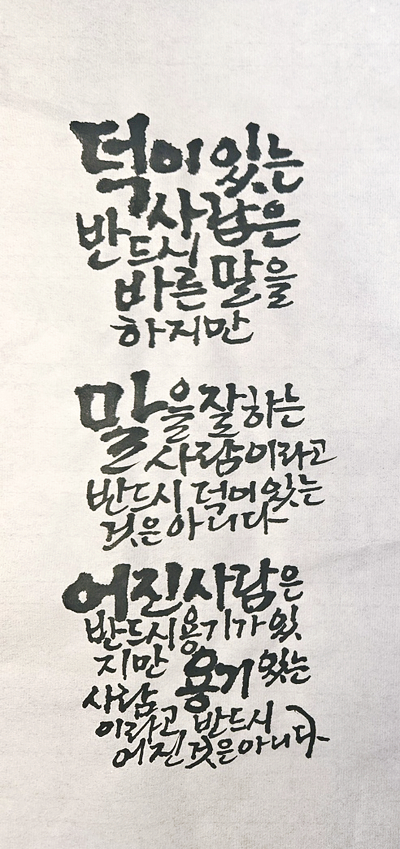 덕이 있는
사람은
반드시
바른 말을
하지만
말을 잘하는
사람이라고
반드시 덕이 있는
것은 아니다
어진 사람은
반드시 용기가 있
지만 용기 있는
사람
이라고 반드시
어진 것은 아니다